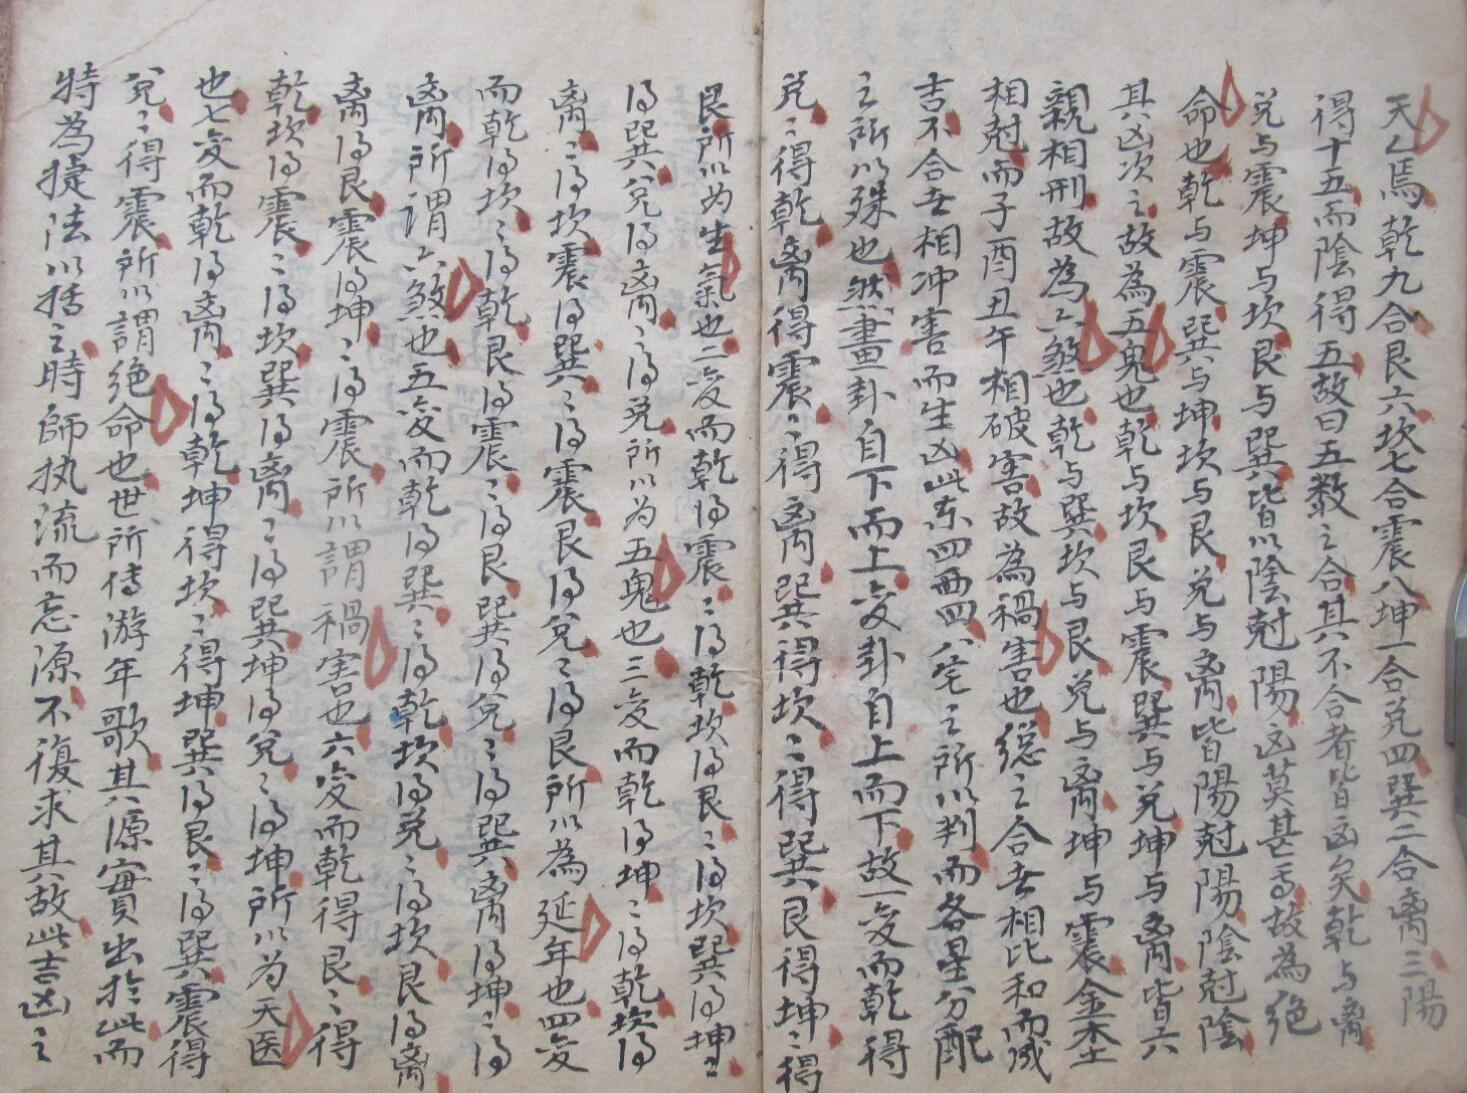 天乙焉乾九合艮六坎七合震八坤一合兑四巽二合离三陽
得十五而陰得五故曰五数之合其不合者皆凶矣乾与离
兑与震坤与坎艮与巽皆以陰尅陽凶莫甚焉故為絶
命也乾与震巽与坤坎与艮兑与离皆陽尅陽陰尅陰
其凶次之故為五鬼也乾与坎艮与震巽与兑坤与离皆六
親相刑故為六煞也乾与巽坎与艮兑与离坤与震金木土
相尅而子酉丑午相破害故為禍害也緫之合去相比和而成
吉不合去相冲害而生凶此东四西四八宅之所以判而各星分配
之所以殊也然畫卦自下而上变卦自上而下故一变而乾得
兑々得乾离得震々得离巽得坎々得巽艮得坤々得
艮所以为生氣也二变而乾得震々得乾坎得艮々得坎巽得坤々
得巽兑得离々得兑所以为五鬼也三变而乾得坤々得乾坎得
离々得坎震得巽々得震艮得兑々得艮所以為延年也四变
而乾得坎々得乾艮得震々得艮巽得兑々得巽离得坤々得
离所謂六煞也五变而乾得巽々得乾坎得兑々得坎艮得离
离得艮震得坤々得震所以謂禍害也六变而乾得艮々得
乾坎得震々得坎巽得离々得巽坤得兑々得坤所以为天医
也七变而乾得离々得乾坤得坎々得坤巽得艮々得巽震得
兑々得震所以謂絶命也世所传游年歌其源實出於此而
特為捷法以括之時師执流而忘源不復求其故此吉凶之